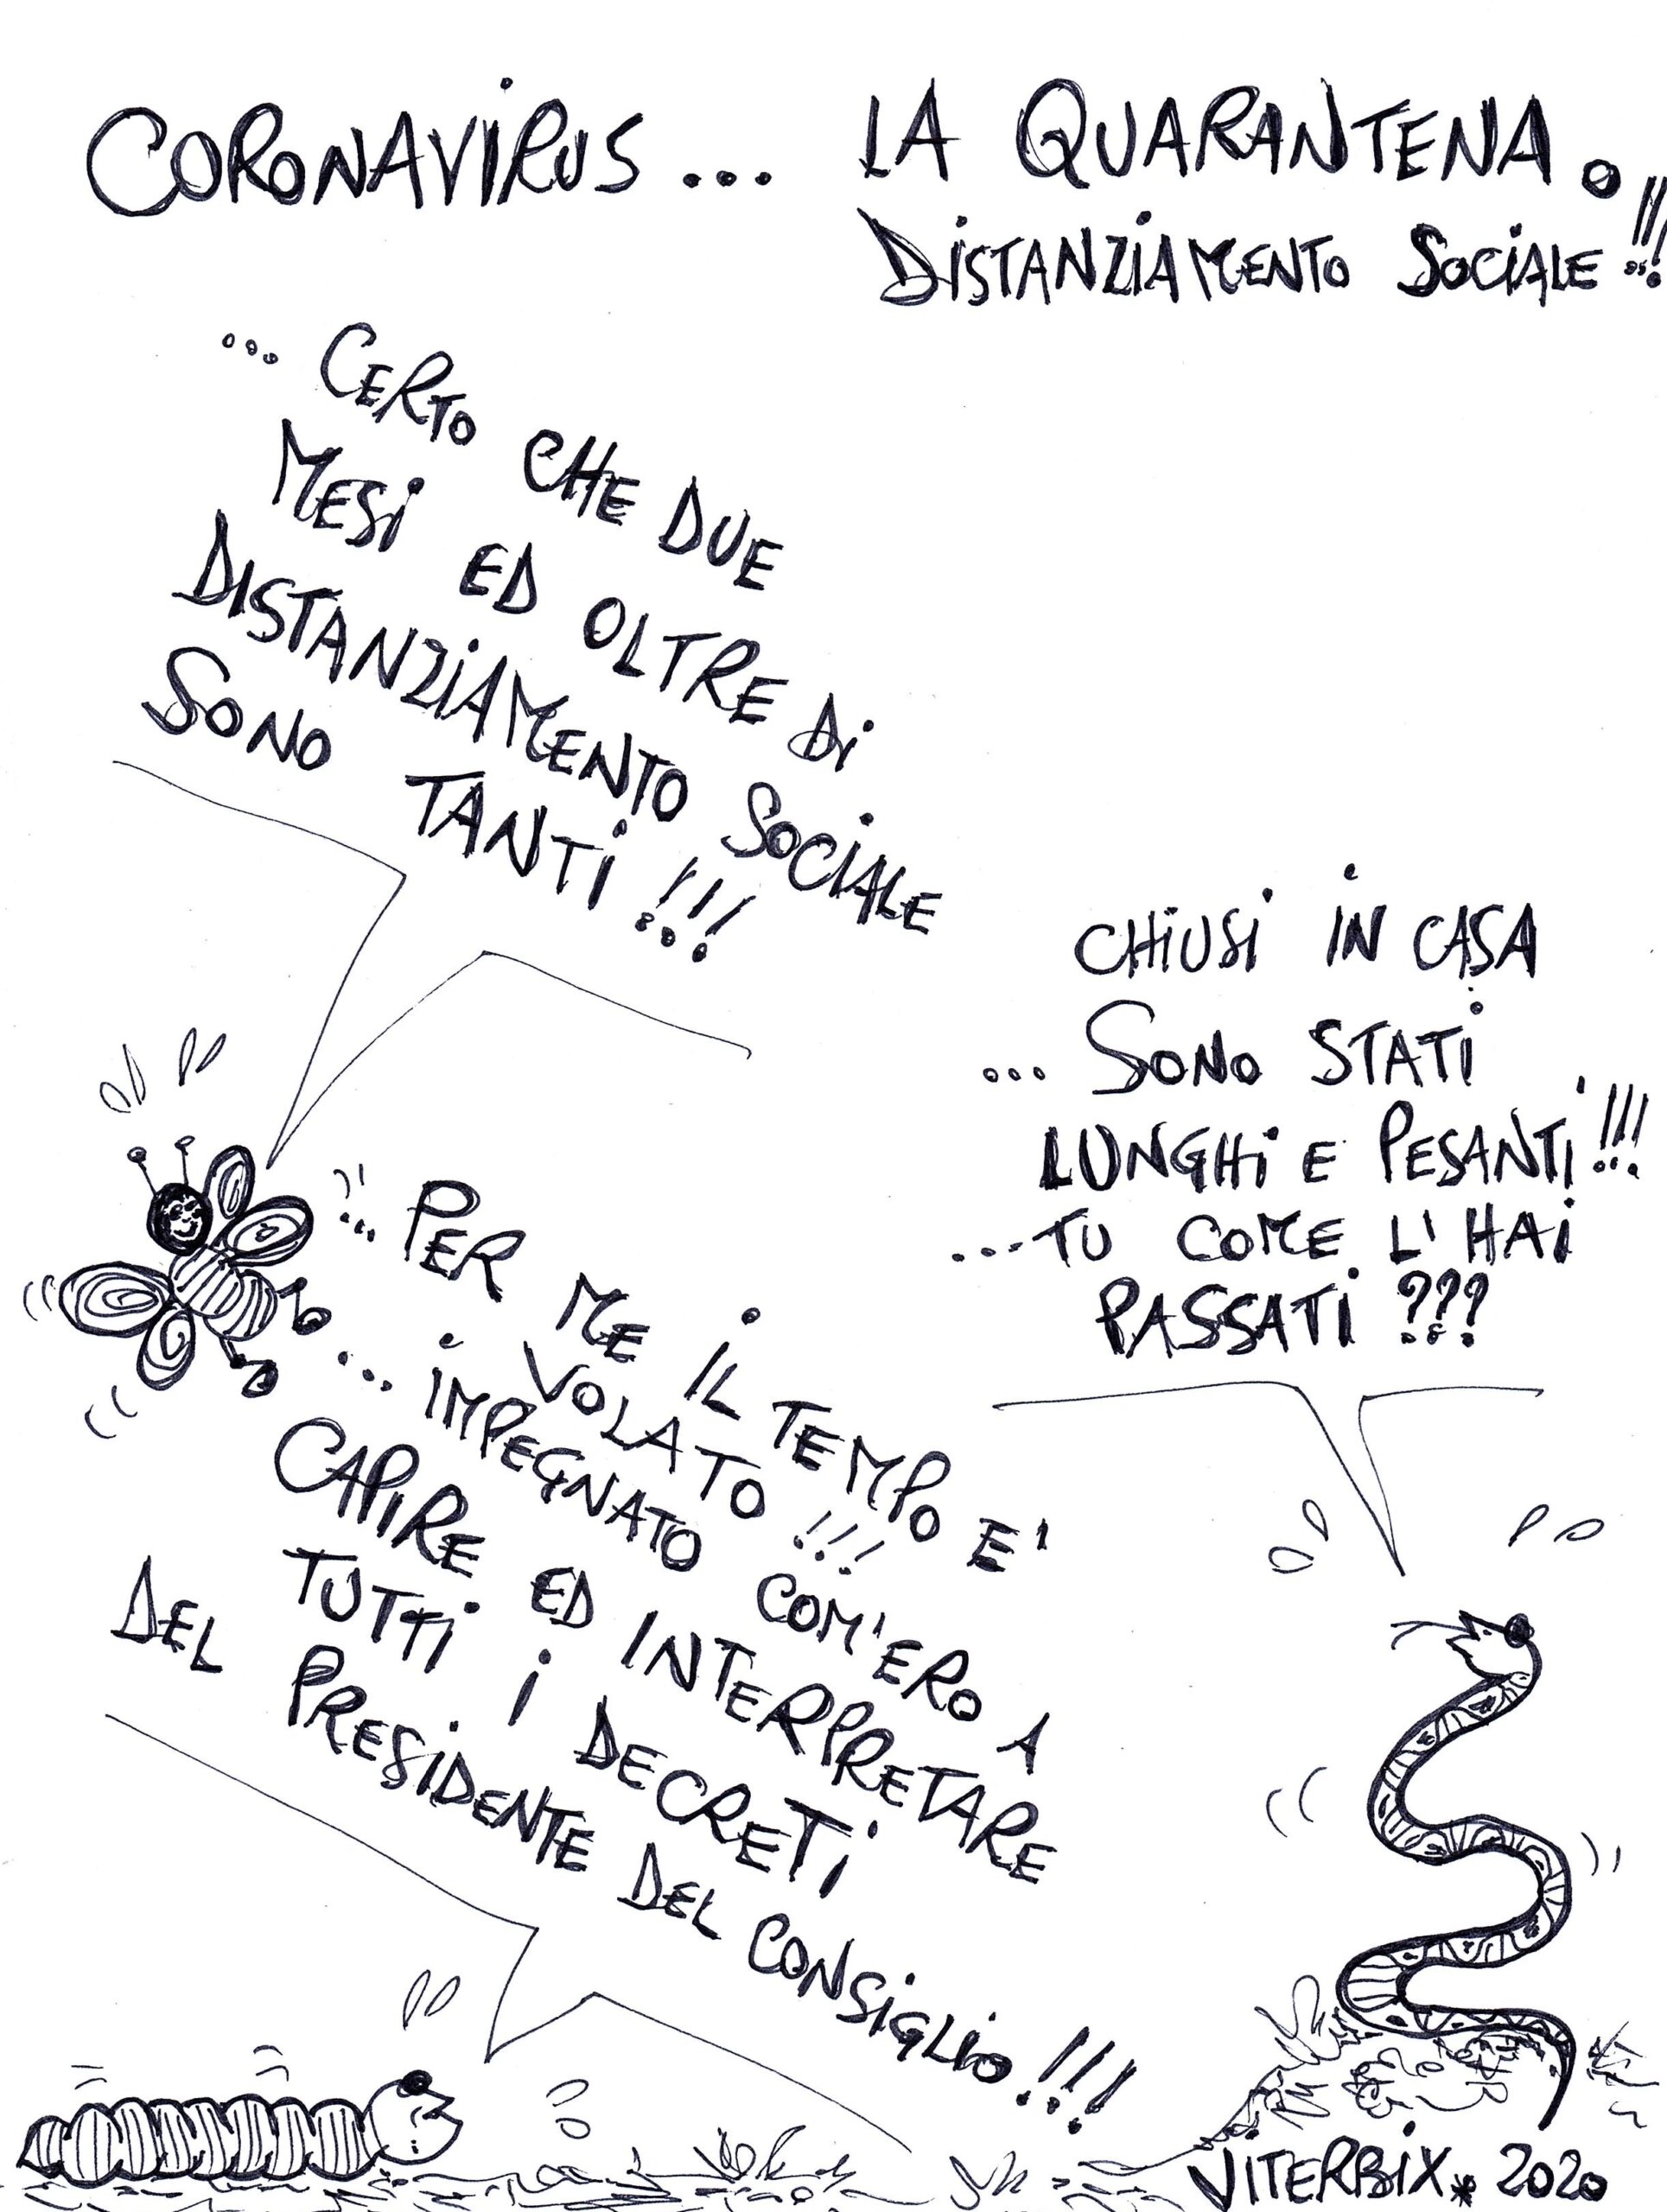 CORONAVIRUS... LA QUARANTENA.
DISTANZIAMENTO SOCIALE!!!
... CERTO CHE DUE
MESI ED OLTRE DI
DISTANZIAMENTO SOCIALE
SONO TANTI!!!
CHIUSI IN CASA
... SONO STATI
LUNGHI E PESANTI!!!
... TU COME L'HAI
PASSATI ???
... PER ME IL TEMPO E'
VOLATO!!!
... IMPEGNATO COM'ERO A
CAPIRE ED INTERPRETARE
TUTTI I DECRETI
DEL PRESIDENTE DEL CONSIGLIO!!!
VITERBIX* 2020